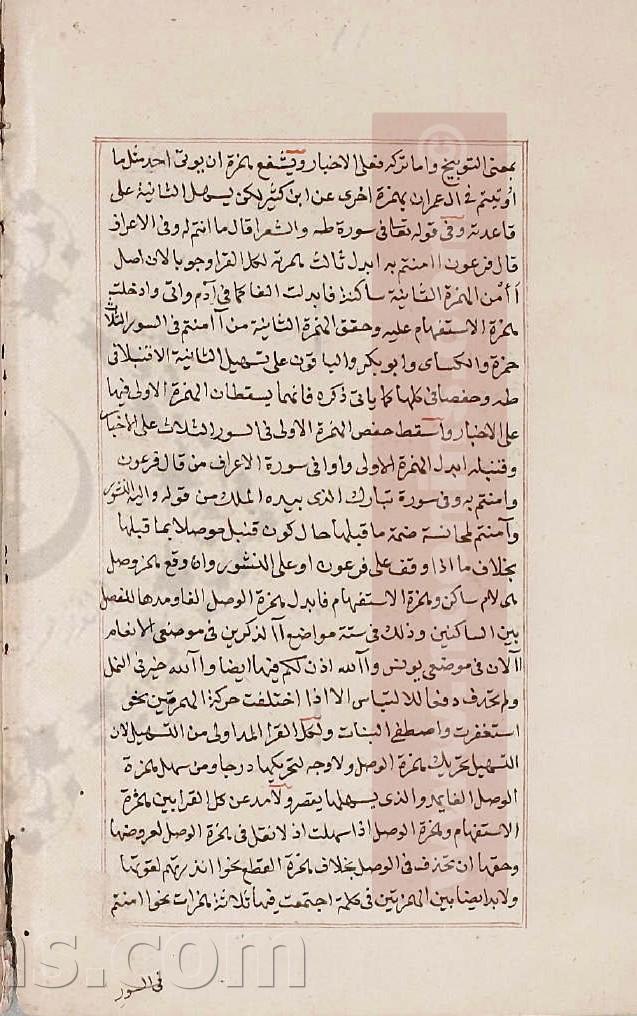 بمعنى التوبيخ واما تركه فعلى الاخبار ويشفع بهمزة ان يوتى احد مثل ما
أوتيتم في ال عمران بهمزة اخرى عن ابن كثير لكن يسهل الثانية على
قاعدته وفي قوله تعالى في سورة طه والشعرا قال ما امنتم له وفي الاعراف
قال فرعون اامنتم به ابدل ثالث بهمزته لكل القرا وجوبا لان اصل
أأمن الهمزة الثانية ساكنة فابدلت الفا كما في آدم واتى وادخلت
همزة الاستفهام عليه وحقق الهمزة الثانية من آامنتم في السور الثلاث
حمزة والكساى وابو بكر والباقون على تسهيل الثانية الا قنبلا في
طه وحفصا في كلها كما ياتى ذكره فانهما يسقطان الهمزة الاولى فيها
على الاخبار واسقط حفص الهمزة الاولى في السور الثلاث على الاخبار
وقنبله ابدل الهمزة الاولى واوا في سورة الاعراف من قال فرعون
وامنتم به وفي سورة تبارك الذى بيده الملك من قوله واليه النشور
وآمنتم لمجانسة ضمة ما قبلها حال كون قنبل موصلا بما قبلها
بخلاف ما اذا وقف على فرعون او على النشور وان وقع همز وصل
بين لام ساكن وهمزة الاستفهام فابدل همزة الوصل الفا ومدها للفصل
بين الساكنين وذلك في ستة مواضع آالذكرين في موضعى الانعام
االان في موضعى يونس وآالله اذن لكم فيها ايضا واالله خير في النمل
ولم تحذف دفعا للالتباس الا اذا اختلفت حركة الهمزتين نحو
استغفرت واصطفى البنات ولكل القرا المد اولى من التسهيل لان
التسهيل تحريك همزة الوصل ولا وجه لتحريكها درجا ومن سهل همزة
الوصل الفا يمد والذى يسهلها يقصر ولا مد عن كل القرا بين همزة
الاستفهام وهمزة الوصل اذا سهلت اذ لا ثقل في همزة الوصل لعروضها
وحقها ان تحذف في الوصل بخلاف همزة القطع نحو اانذرتهم لقوتها
ولا مد ايضا بين الهمزتين في كلمة اجتمعت فيها ثلاثة همزات نحو اامنتم
في السور
ns.com